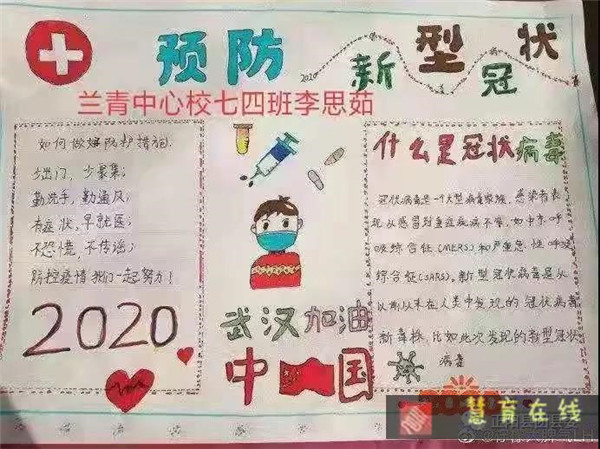 预防
新型冠状
2020
兰青中心校七四班李思茹
如何做好防护措施
少出门，少聚集；
勤洗手，勤通风；
有症状，早就医；
不恐慌，不传谣；
防控疫情我们一起努力！
2020
武汉加油
中国
什么是冠状病毒
冠状病毒是一个大型病毒家族，感染者表
现从感冒到重症疾病不等，如中东呼
吸综合征(MERS)和严重急性呼吸
综合征(SARS)。新型冠状病毒是从
以前从未在人类中发现的冠状病毒
新毒株，比如此次发现的新型冠状
病毒
慧育在线